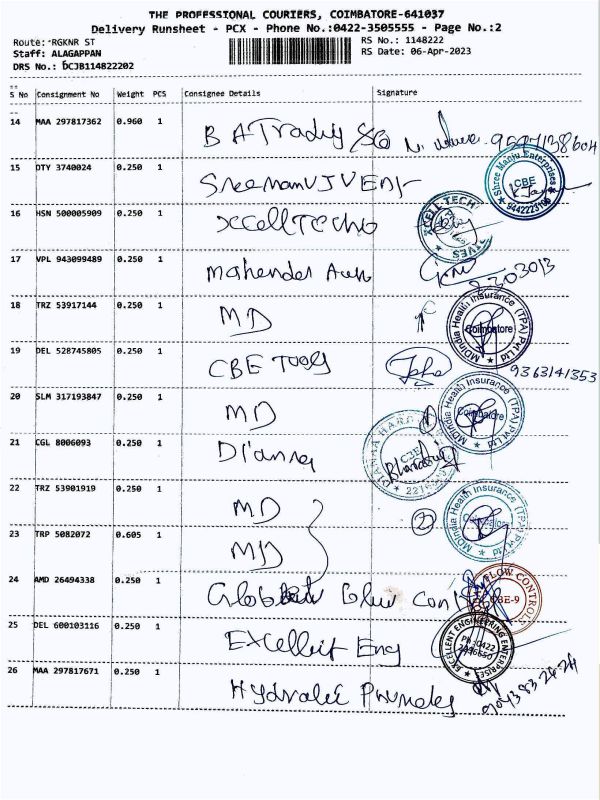 THE PROFESSIONAL COURIERS, COIMBATORE-641037
Delivery Runsheet - PCX - Phone No.:0422-3505555 - Page No.:2
Route: *RGKNR ST
RS No.: 1148222
Staff: ALAGAPPAN
RS Date: 06-Apr-2023
DRS No.: DCJB114822202
S No Consignment No Weight PCS Consignee Details Signature
14 MAA 297817362 0.960 1 B A Trading
15 OTY 3740024 0.250 1
Shree Manju Enterprises
CBE
16 HSN 500005909 0.250 1 Xcell Techno
XCELL-TECH
17 VPL 943099489 0.250 1 Mahender
18 TRZ 53917144 0.250 1 MD
MDIndia Health Insurance (TPA) Pvt Ltd
Coimbatore
19 DEL 528745805 0.250 1 CBE Tools 9363141353
20 SLM 317193847 0.250 1 MD 1
MDIndia Health Insurance (TPA) Pvt Ltd
Coimbatore
21 CGL 8006093 0.250 1 Dianna
CBE
22 TRZ 53901919 0.250 1 MD 2
MDIndia Health Insurance (TPA) Pvt Ltd
Coimbatore
23 TRP 5082072 0.605 1 MD
24 AMD 26494338 0.250 1
FLOW CONTROLS
CBE-9
25 DEL 600103116 0.250 1 Excellent Eng
EXCELLENT ENGINEERING ENTERPRISES
26 MAA 297817671 0.160 1